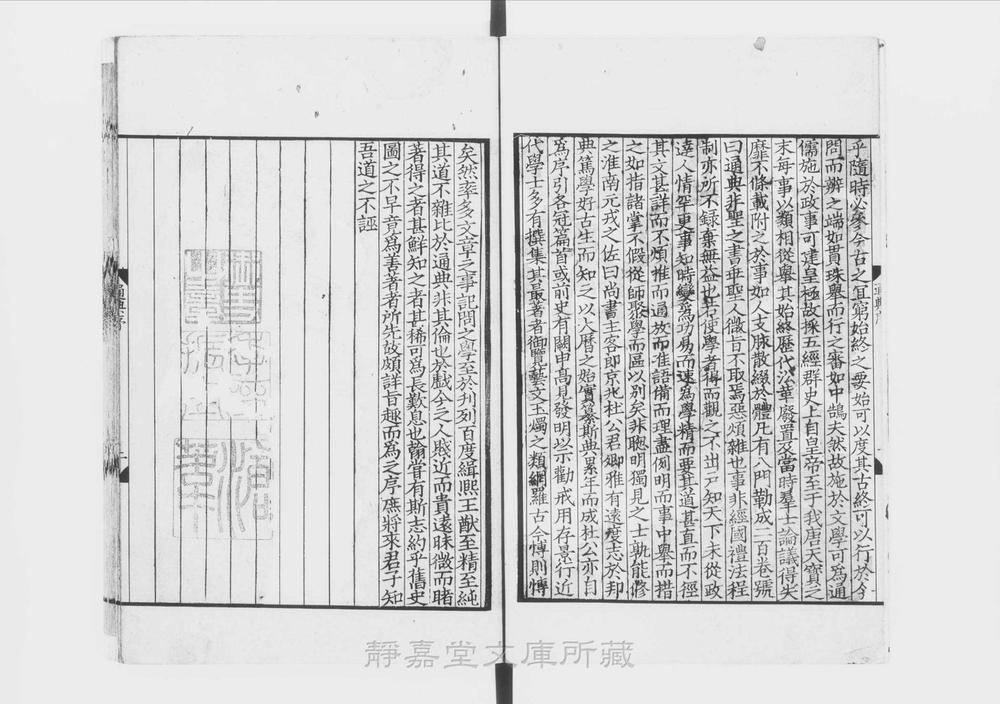 乎隨時必參今古之宜窮始終之要始可以度其古終可以行於今
問而辨之端如貫珠舉而行之審如中鵠夫然故施於文學可爲通
儒施於政事可建皇極故採五經群史上自皇帝至于我唐天寶之
末每事以類相從舉其始終歷代沿革廢置及當時羣士論議得失
靡不條載附之於事如人支脉散綴於體凡有八門勒成二百卷號
曰通典非聖之書乖聖人微旨不取焉惡煩雜也事非經國禮法程
制亦所不録棄無益也若使學者得而觀之不出户知天下未從政
達人情罕更事知時變爲功易而速爲學精而要其道甚直而不徑
其文甚詳而不煩推而通放而准語備而理盡例明而事中舉而措
之如指諸掌不假從師聚學而區以别矣非聦明獨見之士孰能修
之淮南元戎之佐曰尚書主客郎京兆杜公君卿雅有遠度志於邦
典篤學好古生而知之以大曆之始實纂斯典累年而成杜公亦自
爲序引各冠篇首或前史有闕申高見發明以示勸戒用存景行近
代學士多有撰集其最著者御覽藝文玉燭之類網羅古今愽則愽
矣然率多文章之事記問之學至於刋列百度緝熙王猷至精至純
其道不雜比於通典非其倫也於戲今之人賤近而貴遠昧微而睹
著得之者甚鮮知之者甚稀可爲長歎息也翰嘗有斯志約乎舊史
圖之不早竟爲善著者所先故頗詳旨趣而爲之序庶將來君子知
吾道之不誣
靜嘉堂文庫所藏